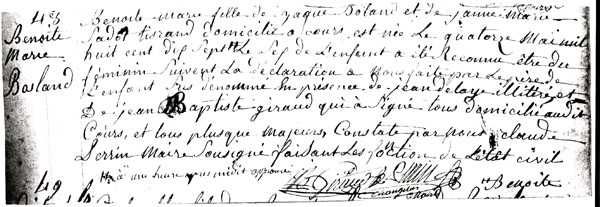 48
Benoite
Marie
Basland
Benoite marie fille de jaque Boland et de janne marie
tisrand domicilié a cours est née Le quatorze Mai mil
huit cent dix sept Le de L'enfent a été Reconnu être du
féminin Suivent La déclaration a Nous faite par Le père de
L'enfant sus denomme en présence de jean delaye illitéré et
De jean Baptiste giraud qui a Signé tous domicilié audit
Cours, et tous plusque majeurs Constate par nous claude
Perrin Maire Sousigné faisant Les de L'état civil
a une heure apres midit
49
Benoite